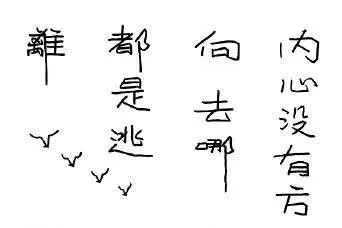 内心没有方
向去哪
都是逃
離